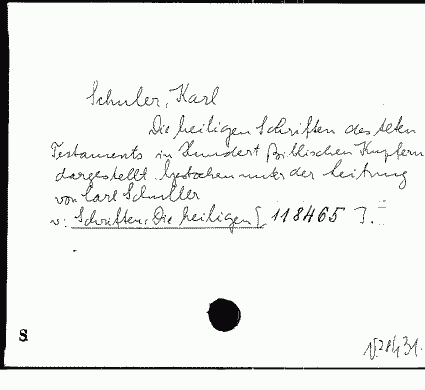 Schuler, Karl
Die heiligen Schriften des alten
Testaments in Hundert Biblischen Kupfern
dargestellt. Gestochen unter der Leitung
von Carl Schuller
v: Schriften, Die heiligen [118465].
S